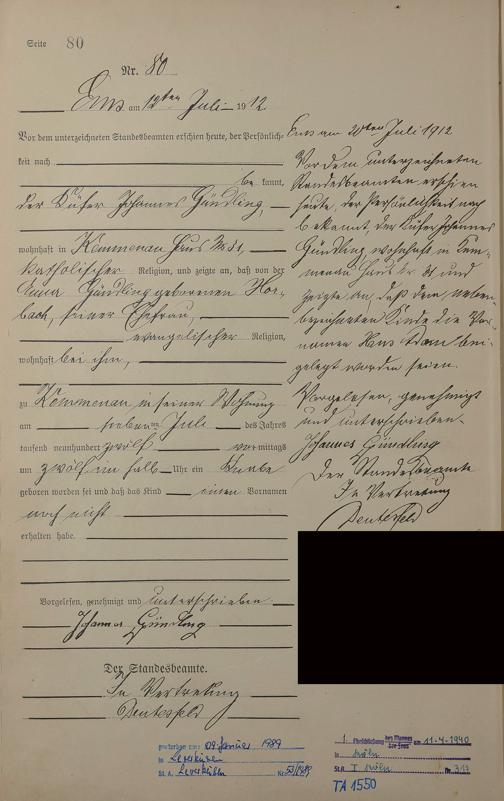 Seite 80
Nr. 80
Ems am 12ten Juli 1912
Vor dem unterzeichneten Standesbeamten erschien heute, der Persönlich-
keit nach
be kannt,
der Küfer Johannes Gündling,
wohnhaft in Kemmenau Haus No 31,
katholischer Religion, und zeigte an, daß von der
Gündling geborenen Hor-
bach, seiner Ehefrau,
evangelischer Religion,
wohnhaft bei ihm,
zu Kemmenau in seiner Wohnung
am sieben ten Juli des Jahres
tausend neunhundert zwölf vormittags
um zwölf ein halb Uhr ein Knabe
geboren worden sei und daß das Kind einen Vornamen
noch nicht
erhalten habe.
Vorgelesen, genehmigt und unterschrieben
Johannes Gündling
Der Standesbeamte.
In Vertretung
Deutesfeld
Ems am 20ten Juli 1912
Vor dem unterzeichneten
Standesbeamten erschien
heute, der Persönlichkeit nach
bekannt, der Küfer Johannes
Gündling wohnhaft in Kem-
menau Haus Nr 31 und
zeigte an, daß dem neben-
bezeichneten Kinde die Vor-
namen Hans Adam bei-
gelegt worden seien.
Vorgelesen, genehmigt
und unterschrieben.
Johannes Gündling
Der Standesbeamte
In Vertretung
Deutesfeld
gestorben am 09. Januar 1989
in Leverkusen
St. A. Leverkusen Nr.
1. Eheschließung des Mannes am 11-4-1940
in Köln
St.A. I Köln Nr. 317
TA 1550